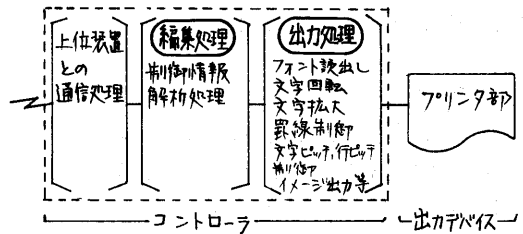 上位装置
との
通信処理
編集処理
制御情報
解析処理
出力処理
フォント読出し
文字回転
文字拡大
罫線制御
文字ピッチ,行ピッチ
制御
イメージ出力等
プリンタ部
コントローラ
出力デバイス